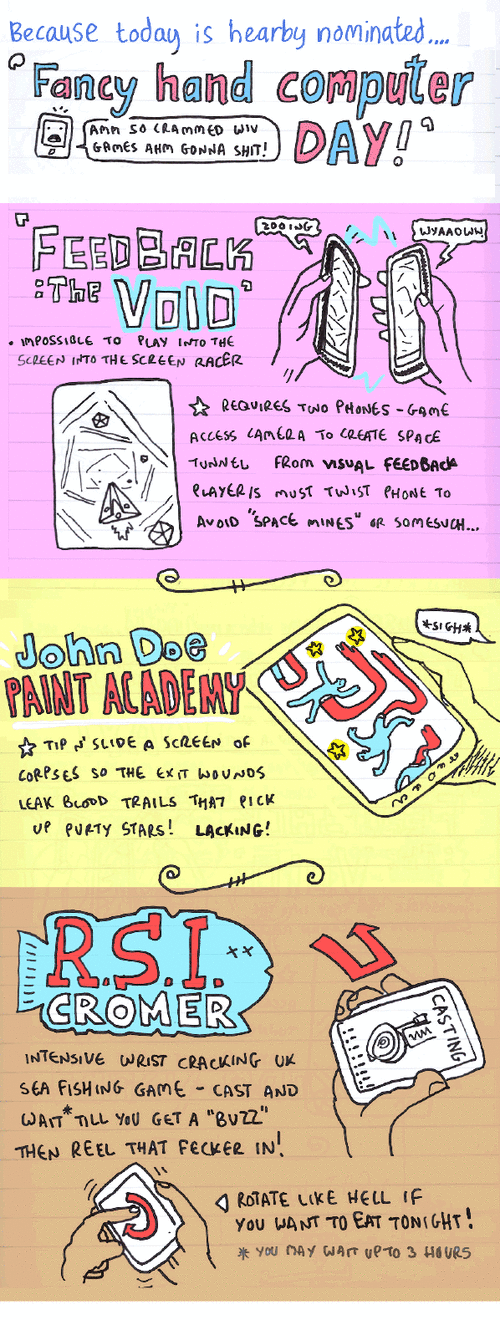 Because today is hearby nominated....
"Fancy hand computer
DAY!"
AMM SO CRAMMED WIV
GAMES AHM GONNA SHIT!
"FEEDBACK
:The VOID"
ZOOING
WYAAOWW
• IMPOSSIBLE TO PLAY INTO THE
SCREEN INTO THE SCREEN RACER
☆ REQUIRES TWO PHONES - GAME
ACCESS CAMERA TO CREATE SPACE
TUNNEL FROM VISUAL FEEDBACK
PLAYER/S MUST TWIST PHONE TO
AVOID "SPACE MINES" OR SOMESUCH...
John Doe
PAINT ACADEMY
*SIGH*
☆ TIP N' SLIDE A SCREEN OF
CORPSES SO THE EXIT WOUNDS
LEAK BLOOD TRAILS THAT PICK
UP PURTY STARS! LACKING!
R.S.I.
CROMER
CASTING
INTENSIVE WRIST CRACKING UK
SEA FISHING GAME - CAST AND
WAIT* TILL YOU GET A "BUZZ"
THEN REEL THAT FECKER IN!
ROTATE LIKE HELL IF
YOU WANT TO EAT TONIGHT!
* YOU MAY WAIT UP TO 3 HOURS